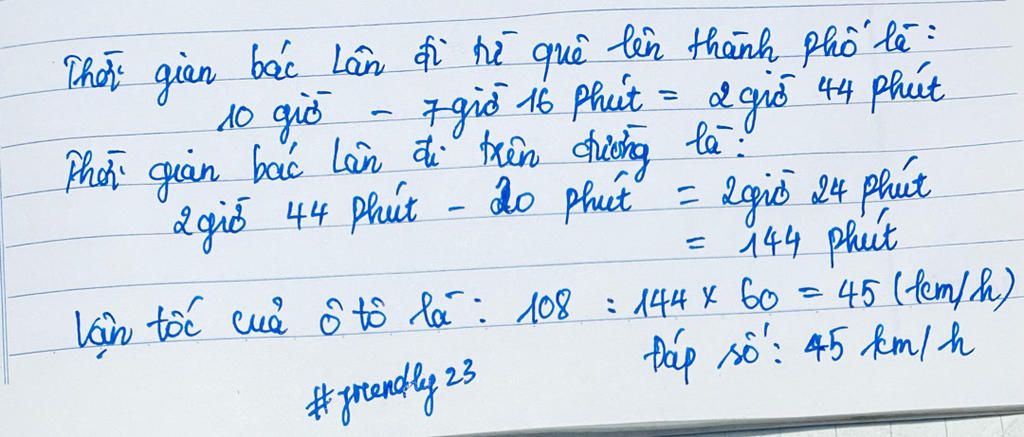 Thời gian bác Lân đi từ quê lên thành phố là:
10 giờ - 7 giờ 16 phút = 2 giờ 44 phút
Thời gian bác Lân đi trên đường là:
2 giờ 44 phút - 20 phút = 2 giờ 24 phút
= 144 phút
Vận tốc của ô tô là: 108 : 144 x 60 = 45 (km/h)
Đáp số: 45 km/h